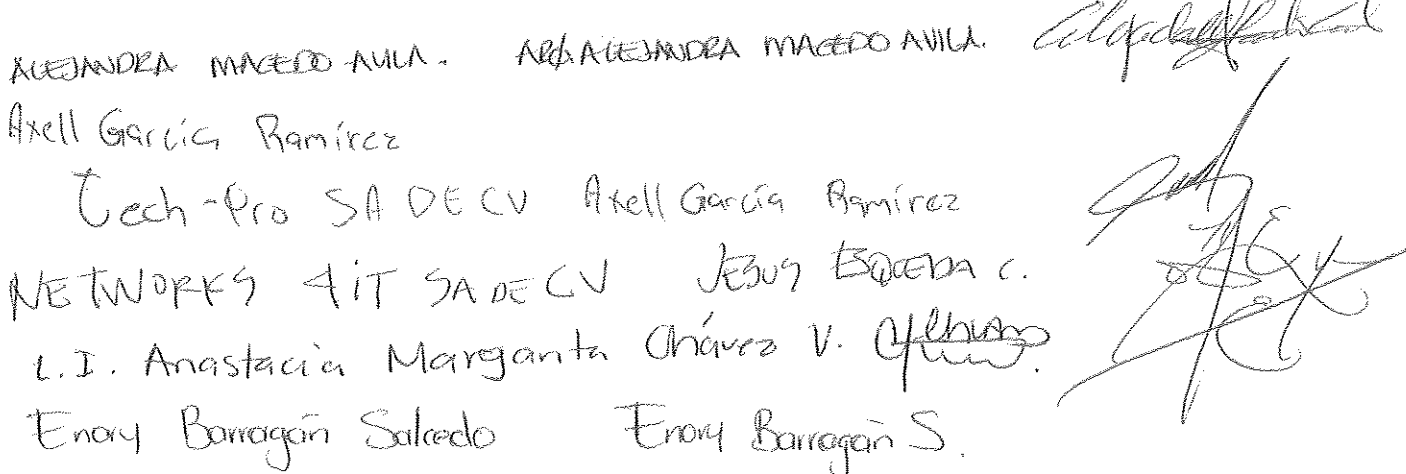 ALEJANDRA MACEDO AVILA. ARQ. ALEJANDRA MACEDO AVILA.
Axell García Ramírez
Tech-Pro SA DE CV Axell García Ramírez
NETWORKS 4iT SA DE CV JESUS ESQUEDA C.
L.I. Anastacia Margarita Chávez V.
Enory Barragán Salcedo Enory Barragán S.